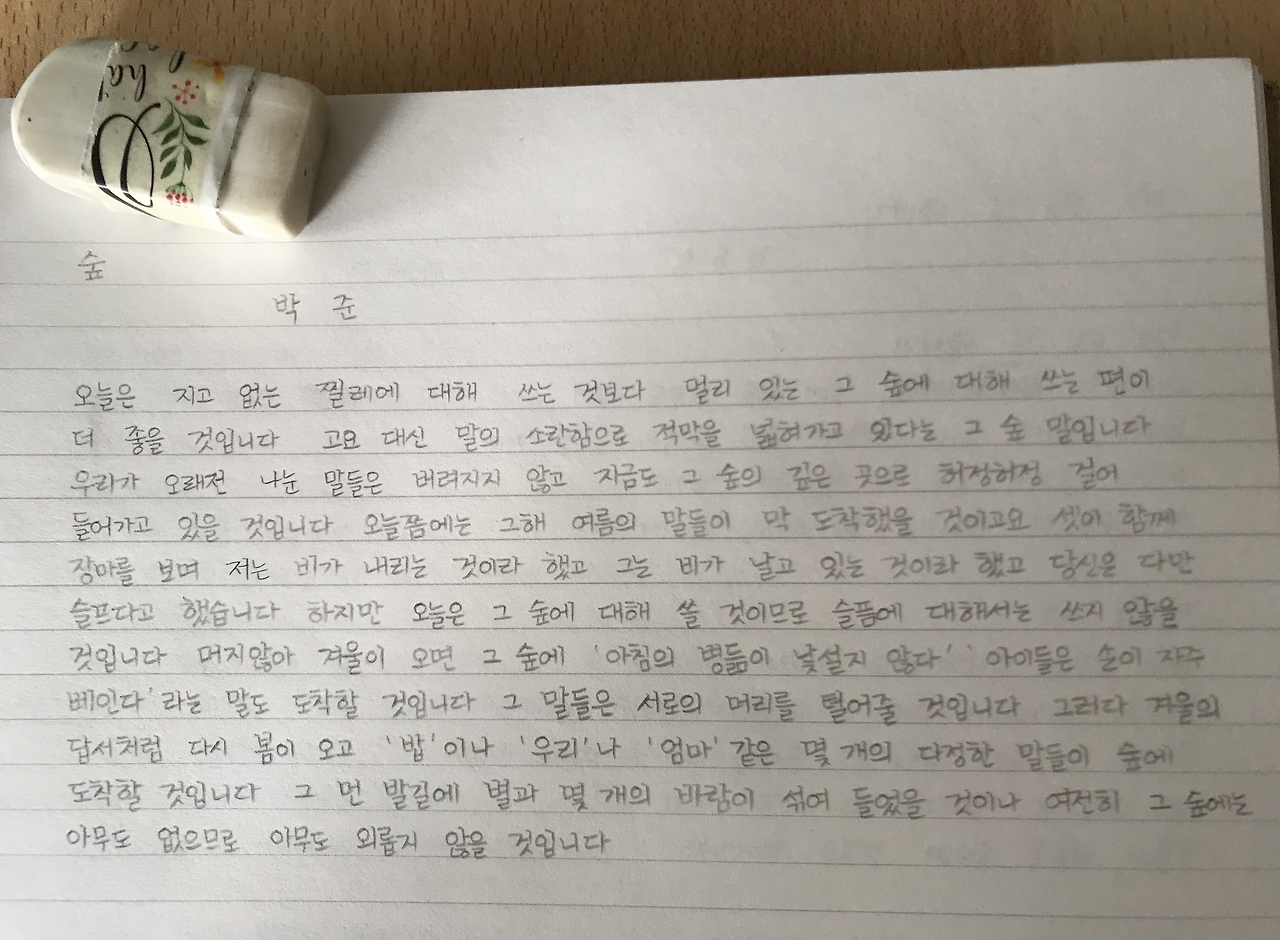 숲
박 준
오늘은 지고 없는 찔레에 대해 쓰는 것보다 멀리 있는 그 숲에 대해 쓰는 편이
더 좋을 것입니다 고요 대신 말의 소란함으로 적막을 넓혀가고 있다는 그 숲 말입니다
우리가 오래전 나눈 말들은 버려지지 않고 지금도 그 숲의 깊은 곳으로 허정허정 걸어
들어가고 있을 것입니다 오늘쯤에는 그해 여름의 말들이 막 도착했을 것이고요 셋이 함께
장마를 보며 저는 비가 내리는 것이라 했고 그는 비가 날고 있는 것이라 했고 당신은 다만
슬프다고 했습니다 하지만 오늘은 그 숲에 대해 쓸 것이므로 슬픔에 대해서는 쓰지 않을
것입니다 머지않아 겨울이 오면 그 숲에 '아침의 병듦이 낯설지 않다' '아이들은 손이 자주
베인다'라는 말도 도착할 것입니다 그 말들은 서로의 머리를 털어줄 것입니다 그러다 겨울의
답서처럼 다시 봄이 오고 '밥'이나 '우리'나 '엄마' 같은 몇 개의 다정한 말들이 숲에
도착할 것입니다 그 먼 발길에 볕과 몇 개의 바람이 섞여 들었을 것이나 여전히 그 숲에는
아무도 없으므로 아무도 외롭지 않을 것입니다